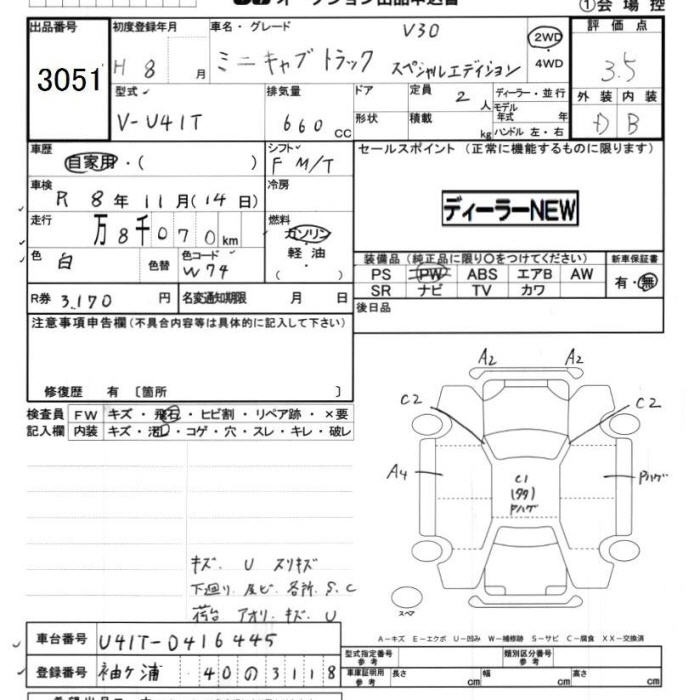 オークション出品申込書 ①会場控
出品番号 3051
初度登録年月 H 8 月
車名・グレード V30
ミニキャブトラック スペシャルエディション
2WD・4WD
評価点 3.5
外装 D 内装 B
型式 V-U41T
排気量 660 cc
ドア 形状
定員 2 人
積載 kg
ディーラー・並行
モデル年式 年
ハンドル 左・右
車歴 自家用・( )
シフト F M/T
セールスポイント (正常に機能するものに限ります)
ディーラーNEW
車検 R 8 年 11 月(14 日)
冷房
走行 万 8千 0 7 0 km
燃料 ガソリン・軽油 ( )
色 白 色替
色コード W74
装備品 (純正品に限り○をつけてください)
PS PW ABS エアB AW
SR ナビ TV カワ
新車保証書 有・無
R券 3,170 円
名変通知期限 月 日
後日品
注意事項申告欄(不具合内容等は具体的に記入して下さい)
修復歴 有 〔箇所 〕
検査員 FW キズ・飛石・ヒビ割・リペア跡・×要
記入欄 内装 キズ・汚レ・コゲ・穴・スレ・キレ・破レ
A2 A2
C2 C2
A4 C1 Pハゲ
(99)
Pハゲ
キズ. U スリキズ
下廻り. 足ヒ". 各所. S.C
荷台 アオリ. キズ. U
スペア
A-キズ E-エクボ U-凹み W-補修跡 S-サビ C-腐食 XX-交換済
車台番号 U41T-0416445
型式指定番号 参考
類別区分番号 参考
登録番号 袖ケ浦 40 の 3118
車庫証明用 参考 長さ cm 幅 cm 高さ cm